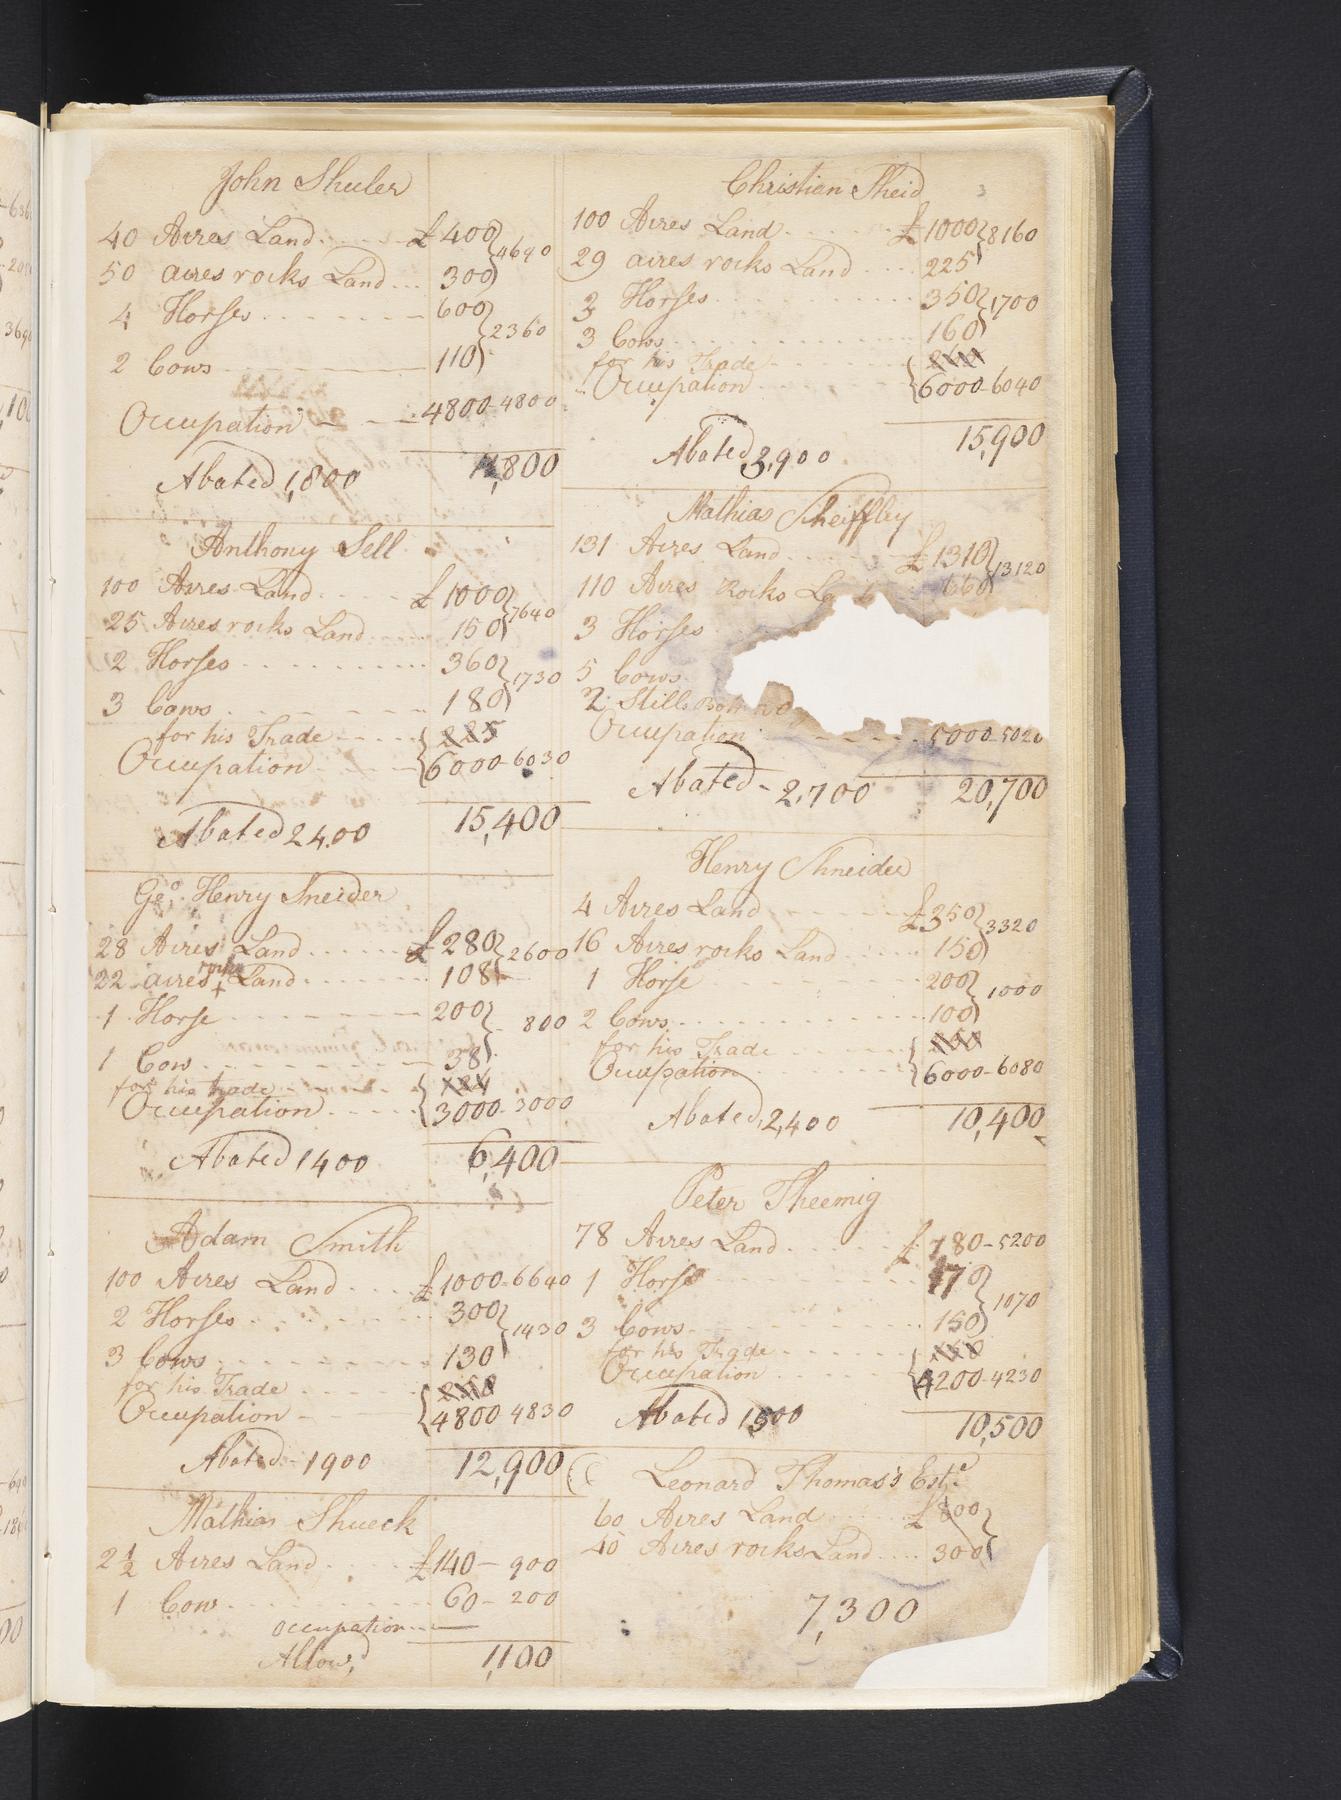 John Shuler
40 Acres Land £400 } 4640
50 acres rocks Land 300
4 Horses 600 } 2360
2 Cows 110
Occupation 4800-4800
Abated 1,800 11,800
Anthony Sell
100 Acres Land £1000 } 7640
25 Acres rocks Land 150
2 Horses 360 } 1730
3 Cows 180
for his Trade 225
Occupation 6000-6030
Abated 2400 15,400
Geo. Henry Sneider
28 Acres Land £280 } 2600
22 acres rocks Land 108
1 Horse 200 } 800
1 Cow 38
for his trade
Occupation 3000-3000
Abated 1400 6,400
Adam Smith
100 Acres Land £1000-6640
2 Horses 300 } 1430
3 Cows 130
for his Trade
Occupation 4800 4830
Abated-1900 12,900
Mathias Shueck
2½ Acres Land £140-900
1 Cow 60-200
occupation
Allowd 1,100
Christian Sheid
100 Acres Land £1000 } 8160
29 acres rocks Land 225
3 Horses 350 } 1700
3 Cows 160
for his Trade
Occupation 6000-6040
Abated 3,900 15,900
Mathias Sheiffley
131 Acres Land £1310 } 13120
110 Acres Rocks 660
3 Horses
5 Cows
2 Still
Occupation 5000-5020
Abated-2,700 20,700
Henry Shneider
4 Acres Land £350 } 3320
16 Acres rocks Land 150
1 Horse 200 } 1000
2 Cows 100
for his Trade
Occupation 6000-6080
Abated, 2,400 10,400
Peter Sheemig
78 Acres Land £780-5200
1 Horse 170 } 1070
3 Cows 150
for his Trade
Occupation 4200-4230
Abated 1500 10,500
Leonard Thomas's Este.
60 Acres Land £800 }
40 Acres rocks Land 300
7,300